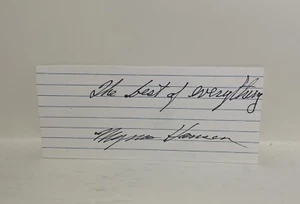 The best of everything
Myrna Hansen